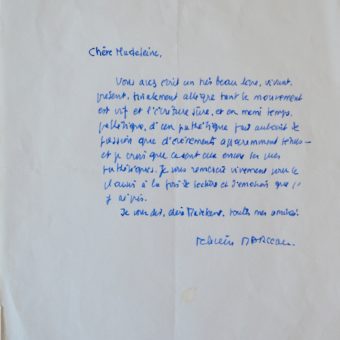 Chère Madeleine,
Vous avez écrit un très beau livre, vivant,
présent, totalement allègre tant le mouvement
est vif et l'écriture sûre, et en même temps,
pathétique, d'un pathétique fait autant de
passion que d'événements apparemment
et je crois que ce sont encore les plus
pathétiques. Je vous remercie vivement pour le
plaisir à la fois de lecture et d'émotion que j'
y ai pris.
Je vous dis, chère Madeleine, toutes mes amitiés.